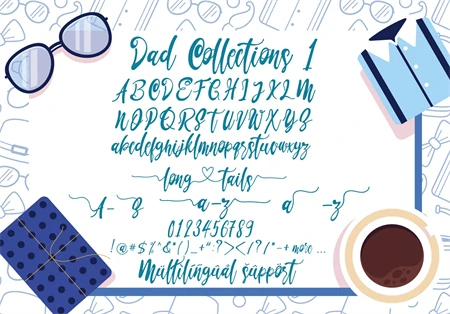 Dad Collections 1
ABCDEFGHIJKLM
NOPQRSTUVWXYZ
abcdefghijklmnopqrstuvwxyz
long tails
A-Z a-z a -z
0123456789
multilingual support